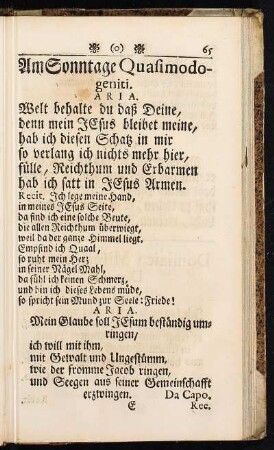 (o) 65
Am Sonntage Quasimodo-
geniti.
ARIA.
Welt behalte du daß Deine,
denn mein JEsus bleibet meine,
hab ich diesen Schatz in mir
so verlang ich nichts mehr hier,
fülle, Reichthum und Erbarmen
hab ich satt in JEsus Armen.
Recit. Ich lege meine Hand,
in meines JEsus Seite,
da find ich eine solche Beute,
die allen Reichthum überwiegt,
weil da der ganze Himmel liegt.
Empfind ich Quaal,
so ruht mein Herz
in seiner Nägel Mahl,
da fühl ich keinen Schmerz,
und bin ich dieses Lebens müde,
so spricht sein Mund zur Seele: Friede!
ARIA.
Mein Glaube soll JEsum beständig um-
ringen,
ich will mit ihm,
mit Gewalt und Ungestümm,
wie der fromme Jacob ringen,
und Seegen aus seiner Gemeinschafft
erzwingen. Da Capo.
E Rec.